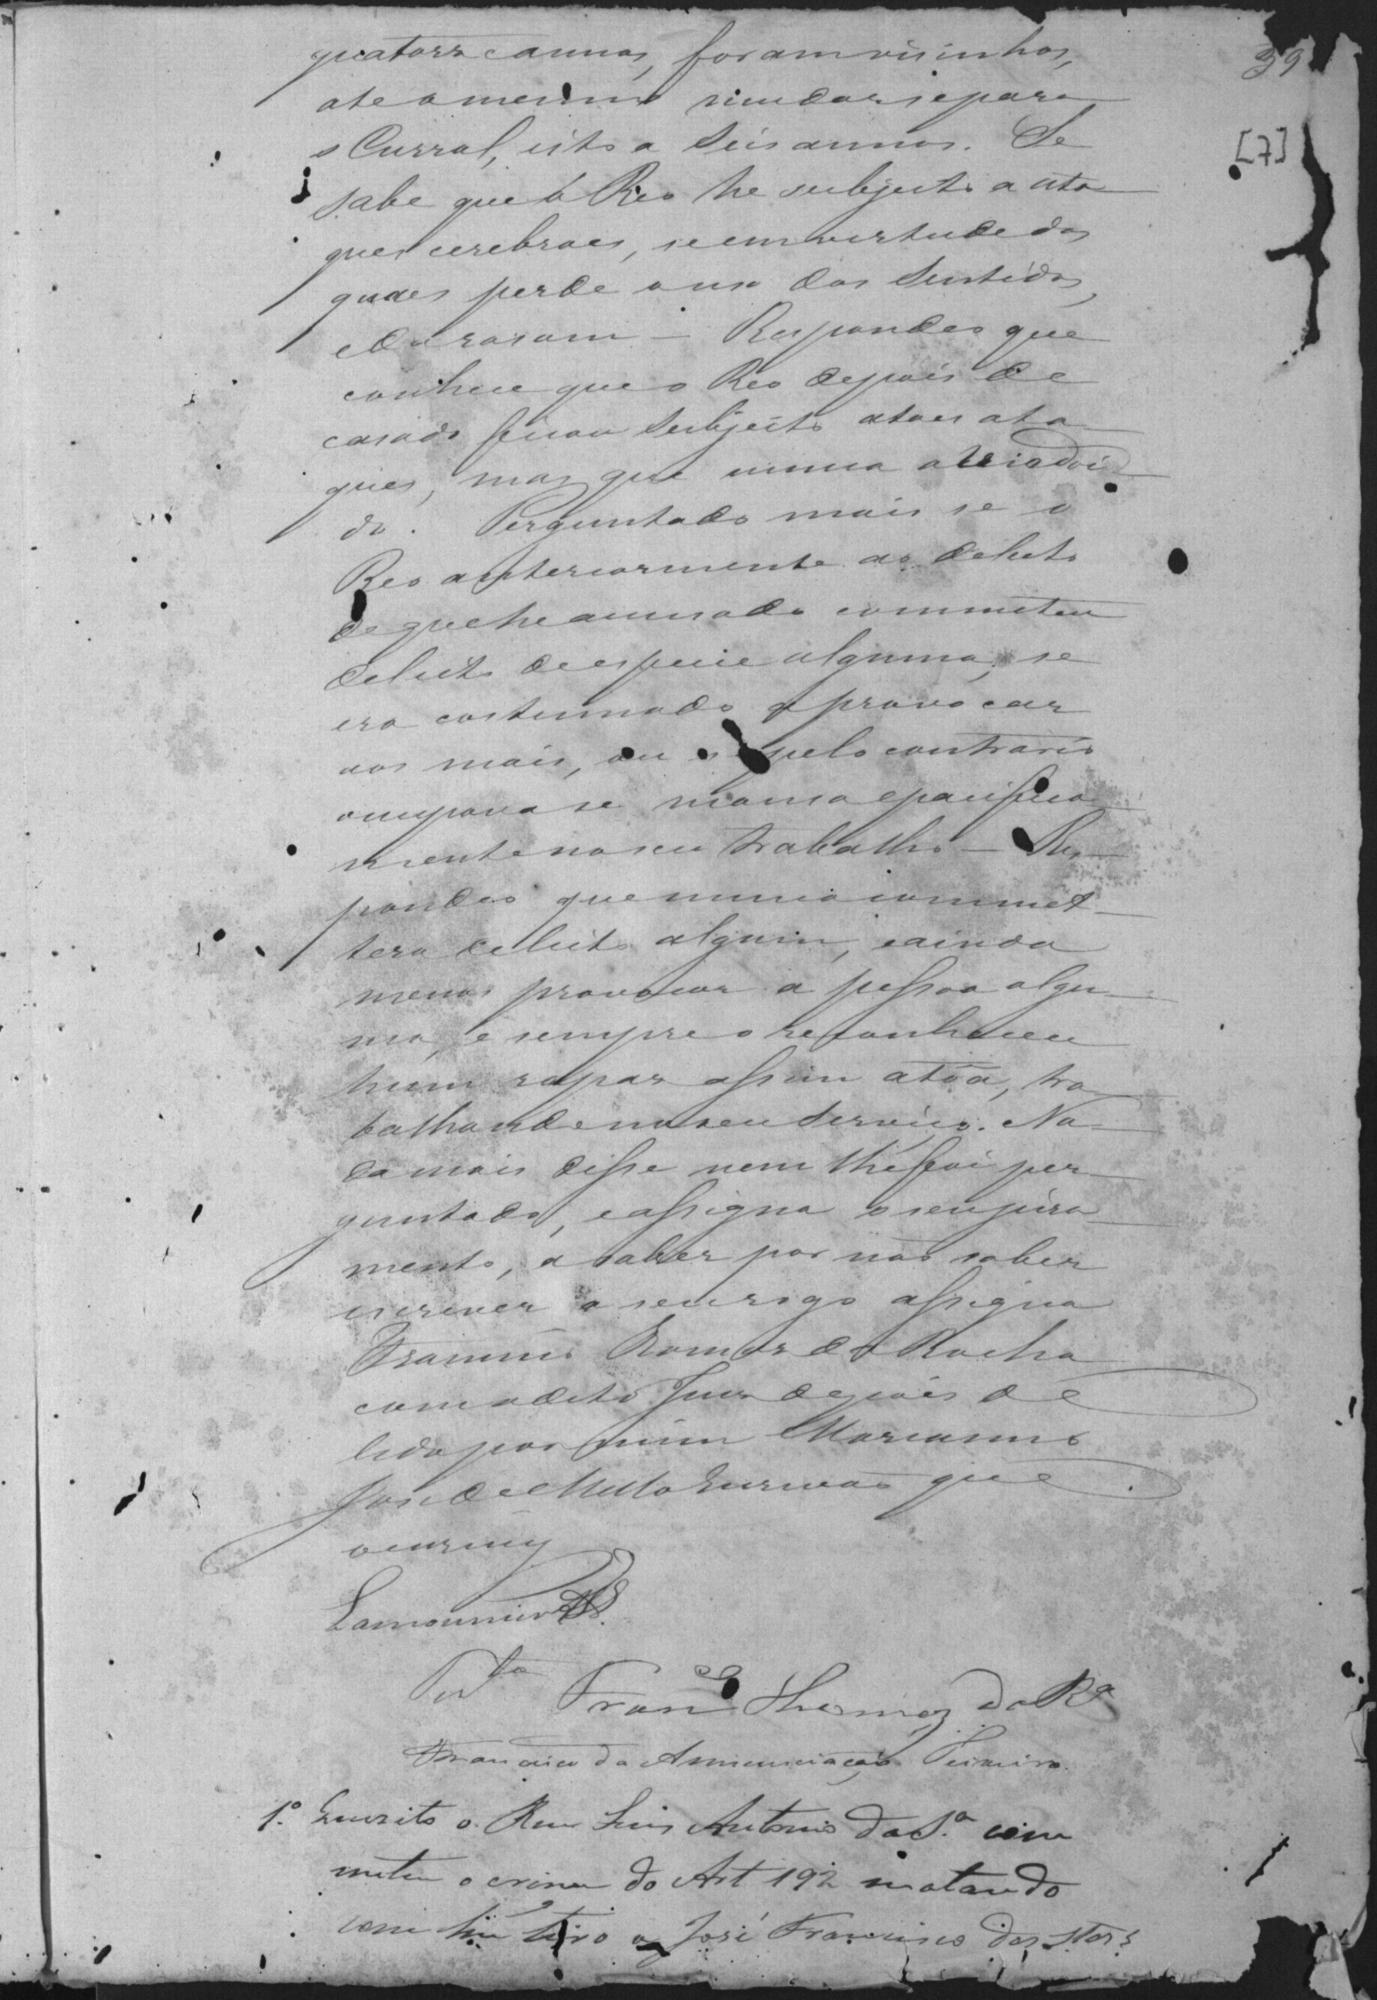 39
[7]
quatorze annos, foram visinhos,
ate o mesmo mudarse para
o Curral, isto a seis annos. Se
sabe que o Reo he subjeito a ata
ques cerebraes, se em vertude dos
quaes perde o uso dos sentidos,
e da rasam - Respondeo que
conhece que o Reo depois de
casado ficou subjeito ataes ata
ques, mas que nunca
do. Perguntado mais se o
Reo anteriormente ao delicto
de que he acusado commeteu
delicto de especie alguma, se
era costumado a provocar
aos mais, ou se pelo contrario
ocupava se mansa e pacifica
mente no seu trabalho - Res
pondeo que nunca commet
tera delicto algum, e ainda
menos provocar a pessoa algu
ma, e sempre o reconheceu
hum rapaz assim atôa, tra
balhande no seu serviço. Na
da mais disse nem lhe foi per
guntado, e assigna o seu jura
mento, a saber por não saber
escrever a seu rogo assigna
Francisco da Rocha
com o dito Juis depois de
lido por mim Marianno
José de Mello Escrivão que
o escrevy
Lamounier
Franco Thermoz da Ra
Francisco da Annunciação Teixeira
1.º Quesito o Reu Luis Antonio da S.a com
meteu o crime do Art 192 matando
com hu tiro a José Francisco dos Stos?